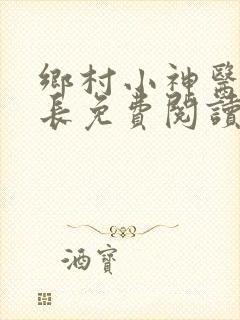 鄉村小神醫
長免費閱讀
酒寶